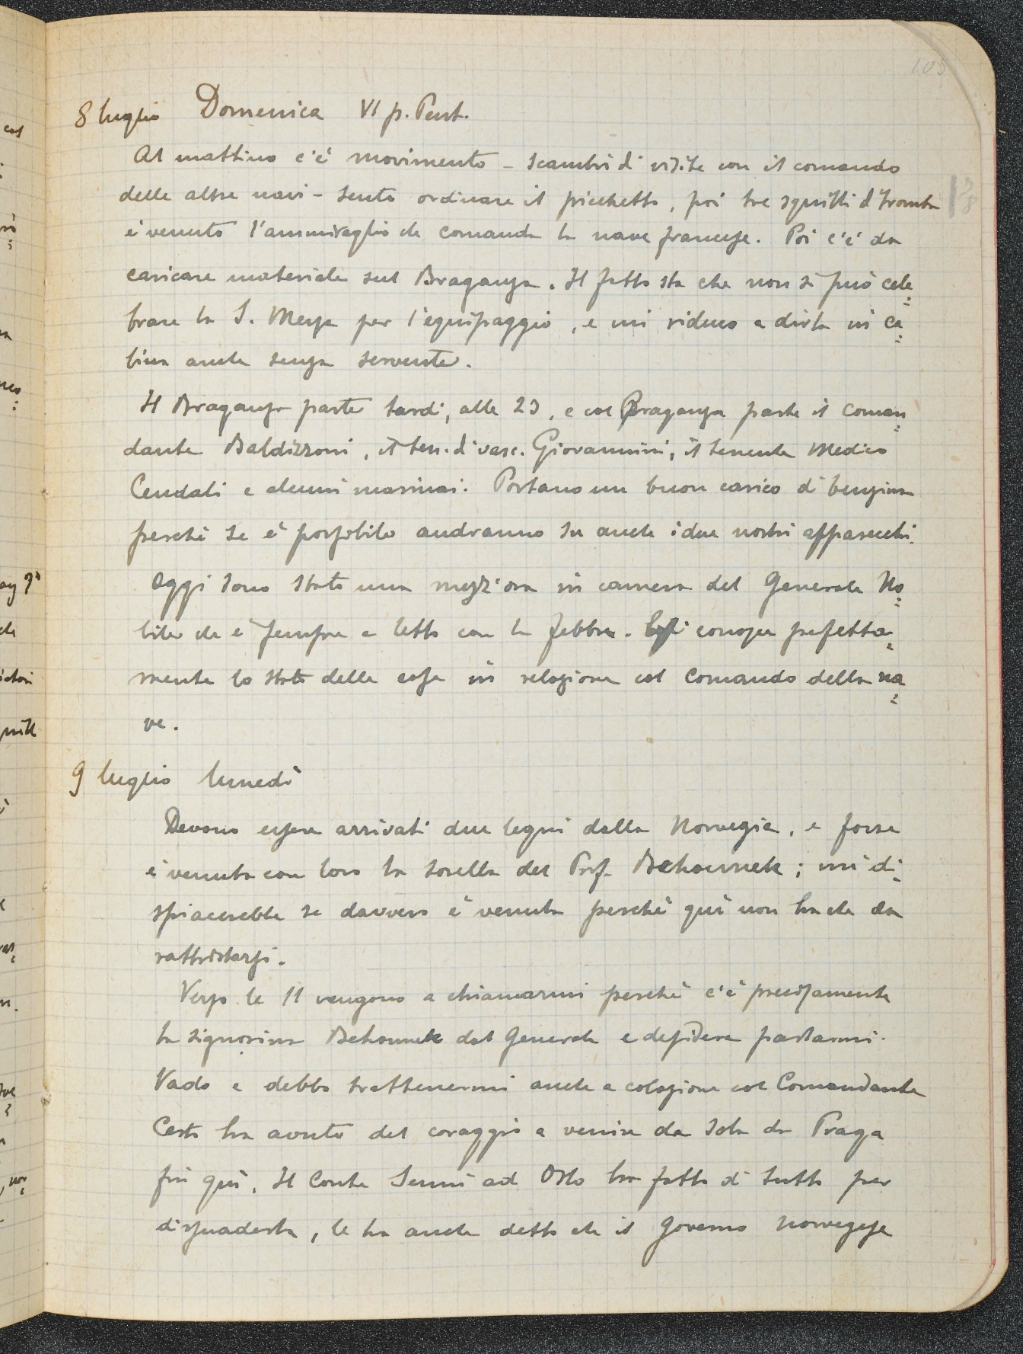 105
8 luglio Domenica VI p. Pent.
Al mattino c'è movimento - scambi di visite con il comando
delle altre navi - sento ordinare il picchetto, poi tre squilli d tromba
è venuto l'ammiraglio che comanda la nave francese. Poi c'è da
caricare materiale sul Braganza. Il fatto sta che non si può cele=
brare la S. Messa per l'equipaggio, e mi riduco a dirla in ca=
bina anche senza servente.
Il Braganza parte tardi, alle 23, e col Braganza parte il coman=
dante Baldizzoni, il ten. di vasc. Giovannini, il tenente Medico
Cendali e alcuni marinai. Portano un buon carico di benzina
perchè se è possibile andranno su anche i due nostri apparecchi.
Oggi sono stato una mezz'ora in camera del Generale No=
bile che è sempre a letto con la febbre. Egli conosce perfetta=
mente lo stato delle cose in relazione col Comando della na=
ve.
9 luglio lunedì
Devono essere arrivati due legni dalla Norvegia, e forse
è venuta con loro la sorella del Prof. Behounek; mi di=
spiacerebbe se davvero è venuta perchè qui non ha che da
rattristarsi.
Verso le 11 vengono a chiamarmi perchè c'è precisamente
la signorina Behounek dal Generale e desidera parlarmi.
Vado e debbo trattenermi anche a colazione col Comandante
Certo ha avuto del coraggio a venire da sola da Praga
fin qui. Il Conte Senni ad Oslo ha fatto di tutto per
dissuaderla, le ha anche detto che il governo norvegese